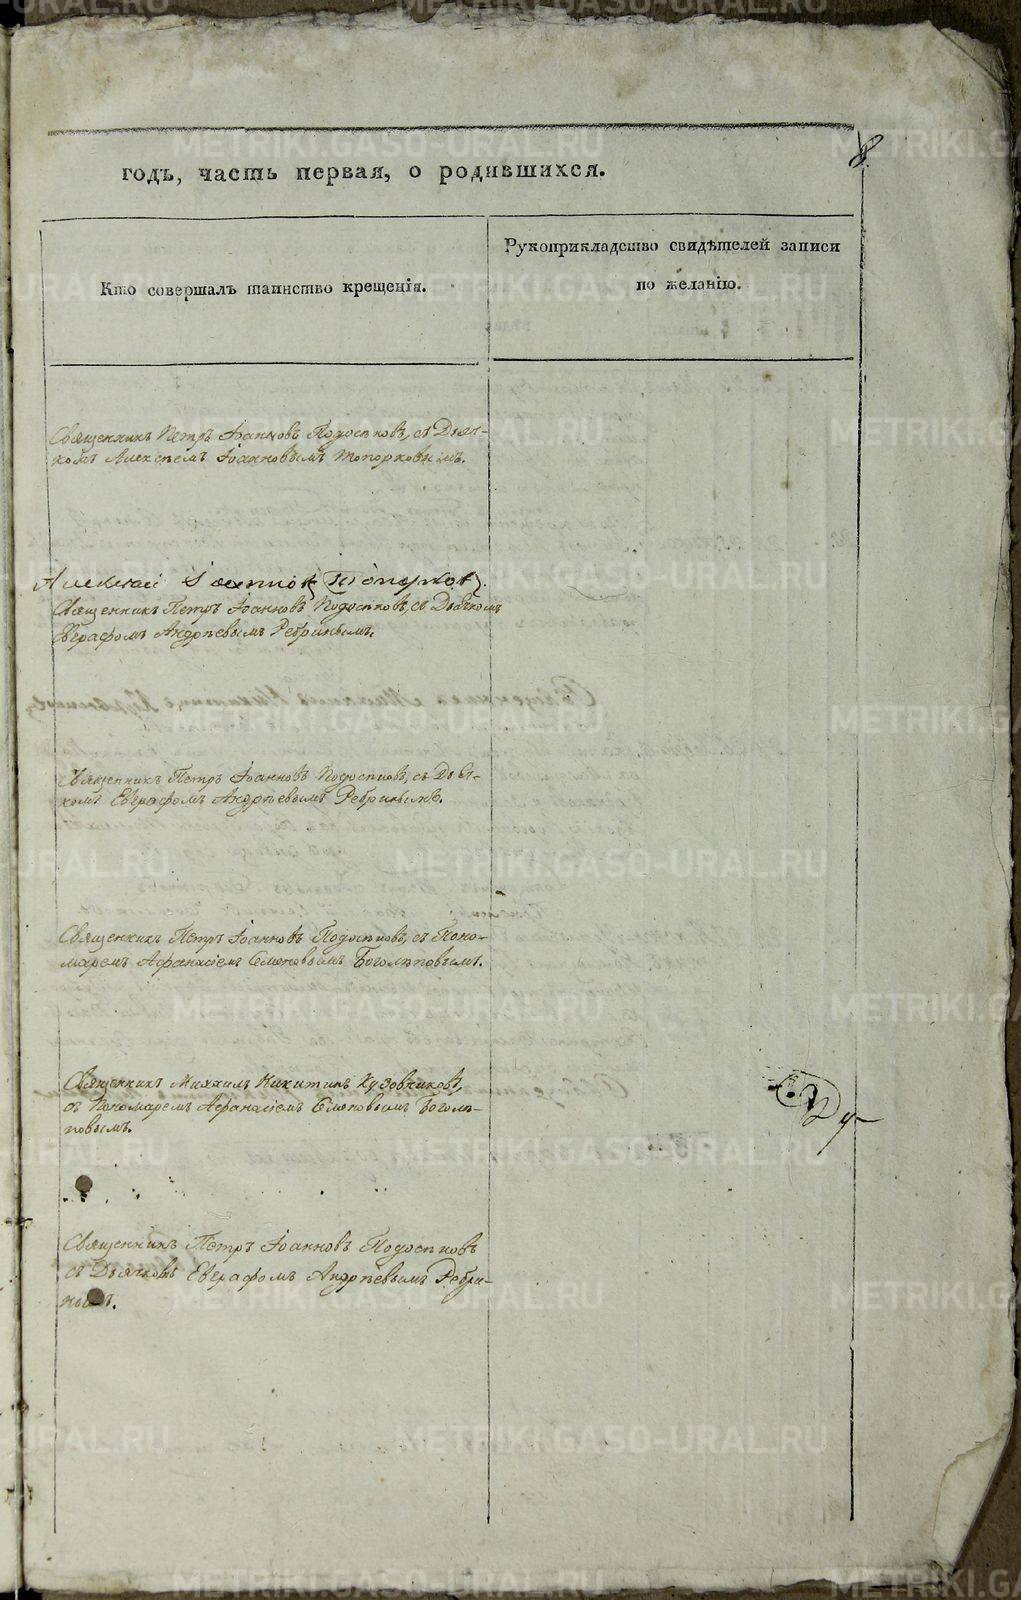 8.
годъ, часть первая, о родившихся.
Кто совершалъ таинство крещенія.
Рукоприкладство свидѣтелей записи
по желанію.
Священникъ Петръ Іоанновъ Подосѣновъ, съ Дьяч-
комъ Алексѣемъ Іоанновымъ Топорковымъ.
Алексѣй Іоанновъ Топорковъ.
Священникъ Петръ Іоанновъ Подосѣновъ, съ Дьячкомъ
Евграфомъ Андрѣевымъ Ребринымъ.
Священникъ Петръ Іоанновъ Подосѣновъ, съ Дьяч-
комъ Евграфомъ Андрѣевымъ Ребринымъ.
Священникъ Петръ Іоанновъ Подосѣновъ, съ Поно-
маремъ Афанасіемъ Семеновымъ Боголѣповымъ.
Священникъ Михаилъ Никитинъ Кузовниковъ,
съ Пономаремъ Афанасіемъ Семеновымъ Боголѣ-
повымъ.
Священникъ Петръ Іоанновъ Подосѣновъ
съ Дьячковъ Евграфомъ Андрѣевымъ Ребри-
нымъ.
METRIKI.GASO-URAL.RU